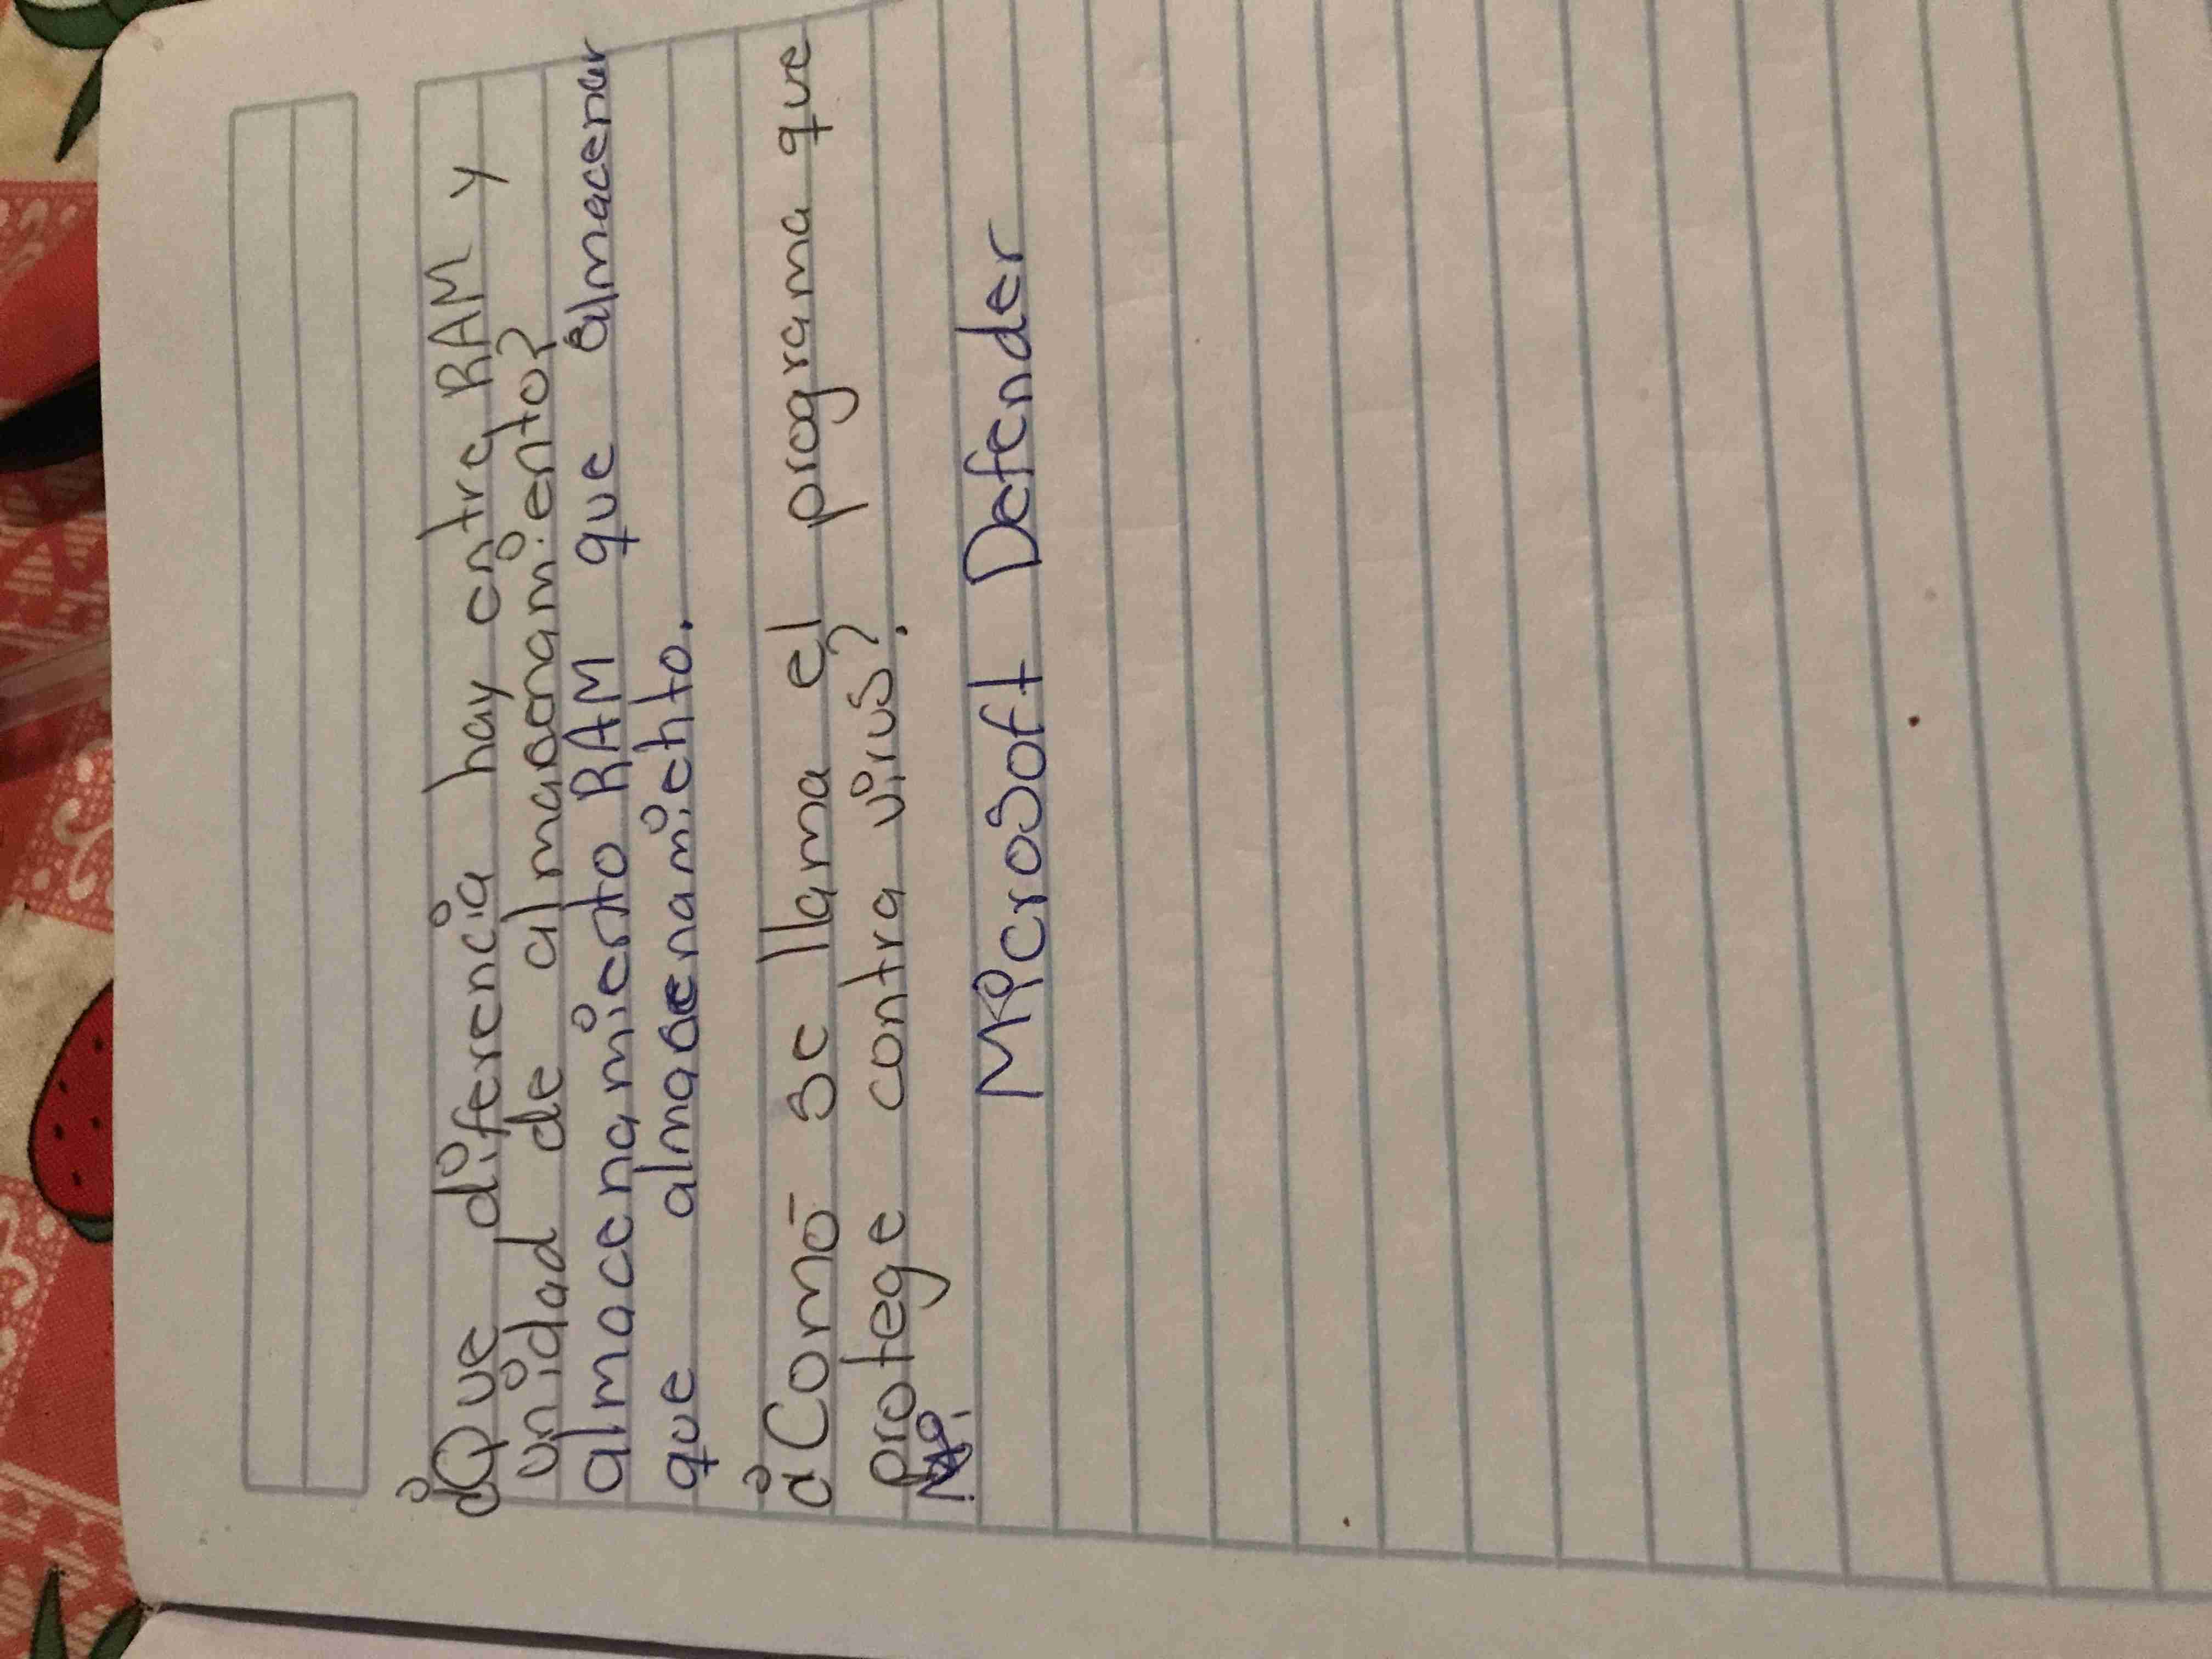 ¿Que diferencia hay entre RAM y
unidad de almasenamiento?
almacenamiento RAM que almacenar
que almasenamiento.
¿Como se llama el programa que
protege contra virus?
Microsoft Defender